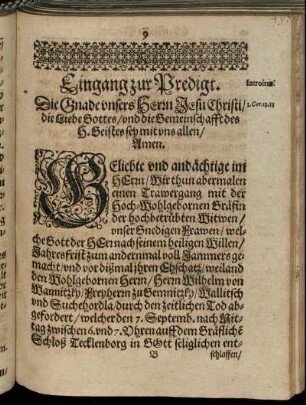 9
Eingang zur Predigt.
Introitus.
Die Gnade vnsers HErrn JEsu Christi/
die Liebe Gottes/ vnd die Gemeinschafft des
H. Geistes sey mit vns allen/
Amen.
GEliebte vnd andächtige im
HErrn/ Wir thun abermalen
einen Trawergang mit der
Hoch-Wohlgebornen Gräfin
der hochbetrübten Witwen/
vnser Gnedigen Frawen/ wel-
che Gott der HErr nach seinem heiligen Willen/
Jahresfrist zum andernmal voll Jammers ge-
macht/ vnd vor dißmal jhren Ehschatz/ weiland
den Wohlgebornen Herrn/ Herrn Wilhelm von
Wannitzky/ Freyherrn zu Gemnitzky/ Wallitsch
vnd Suchehordla/ durch den zeitlichen Tod ab-
gefordert/ welcher den 7. Septemb. nach Mit-
tag zwischen 6. vnd 7. Vhren auff dem Gräfliche
Schloß Tecklenborg in GOtt seliglichen ent-
B schlaffen/